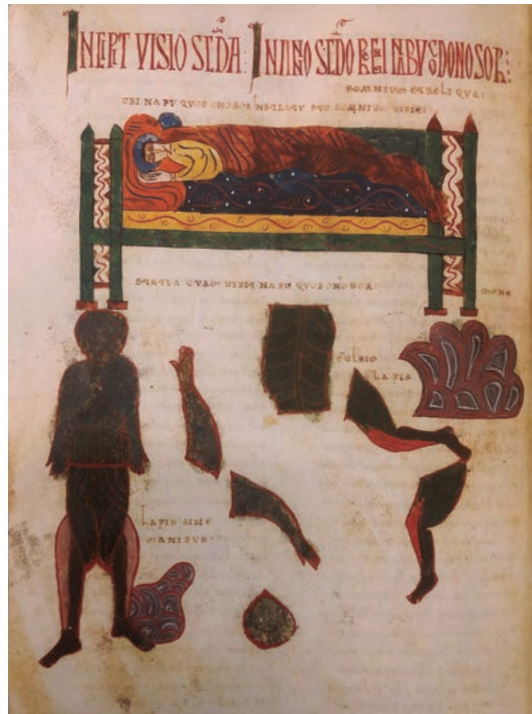 INCIPIT VISIO SCDA IN ANNO SCDO REGNI NABUCODONOSOR:
SOMNIUM ET RELIQUA:
UBI NABUQUODONOSOR SUO SOMNIUM
STATUA QUAM UIDIT NABUQUODONOSOR:
MONS
LAPIS
LAPIS SINE
MANIBUS